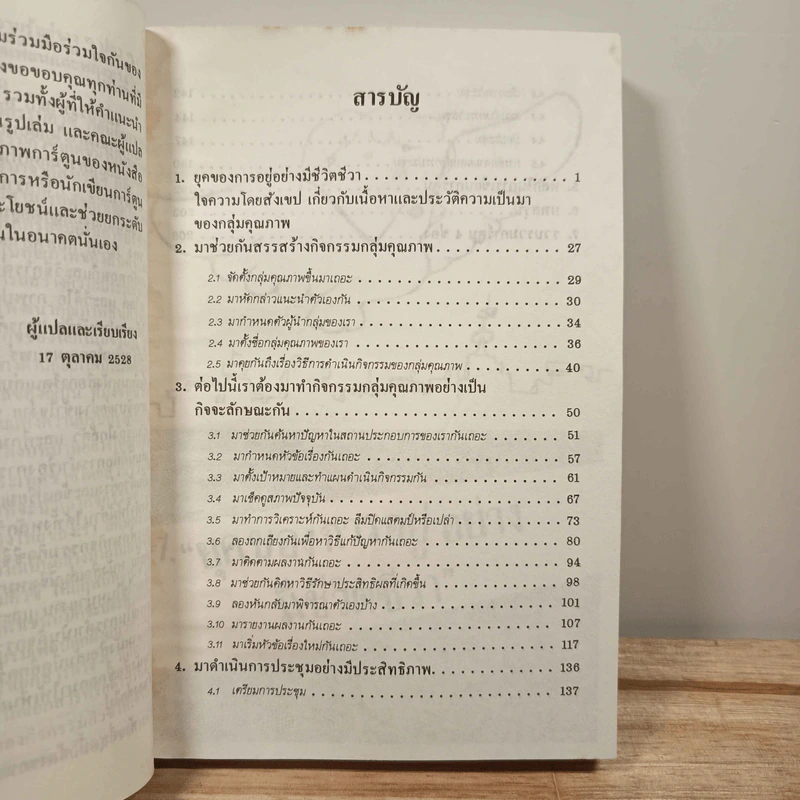 ร่วมมือร่วมใจกันของ
ขอขอบคุณทุกท่านที่มี
รวมทั้งผู้ที่ให้คำแนะนำ
รูปเล่ม และคณะผู้แปล
ภาพการ์ตูนของหนังสือ
การหรือนักเขียนการ์ตูน
ะโยชน์และช่วยยกระดับ
นในอนาคตนั่นเอง
ผู้แปลและเรียบเรียง
17 ตุลาคม 2528
สารบัญ
1. ยุคของการอยู่อย่างมีชีวิตชีวา . . . . . . . . . . . . . . . . . . . . . . 1
ใจความโดยสังเขป เกี่ยวกับเนื้อหาและประวัติความเป็นมา
ของกลุ่มคุณภาพ
2. มาช่วยกันสรรสร้างกิจกรรมกลุ่มคุณภาพ . . . . . . . . . . . . . 27
2.1 จัดตั้งกลุ่มคุณภาพขึ้นมาเถอะ . . . . . . . . . . . . . . . . . . . . 29
2.2 มาหัดกล่าวแนะนำตัวเองกัน . . . . . . . . . . . . . . . . . . . . 30
2.3 มากำหนดตัวผู้นำกลุ่มของเรา . . . . . . . . . . . . . . . . . . . . 34
2.4 มาตั้งชื่อกลุ่มคุณภาพของเรา . . . . . . . . . . . . . . . . . . . . 36
2.5 มาคุยกันถึงเรื่องวิธีการดำเนินกิจกรรมของกลุ่มคุณภาพ . . . . . . . . . 40
3. ต่อไปนี้เราต้องมาทำกิจกรรมกลุ่มคุณภาพอย่างเป็น
กิจจะลักษณะกัน . . . . . . . . . . . . . . . . . . . . . . . . . . . . 50
3.1 มาช่วยกันค้นหาปัญหาในสถานประกอบการของเรากันเถอะ . . . . . . . 51
3.2 มากำหนดหัวข้อเรื่องกันเถอะ . . . . . . . . . . . . . . . . . . . . 57
3.3 มาตั้งเป้าหมายและทำแผนดำเนินกิจกรรมกัน . . . . . . . . . . . . . 61
3.4 มาเช็คดูสภาพปัจจุบัน . . . . . . . . . . . . . . . . . . . . . . . 67
3.5 มาทำการวิเคราะห์กันเถอะ ลืมปิดแสตมป์หรือเปล่า . . . . . . . . . . . 73
3.6 ลองถกเถียงกันเพื่อหาวิธีแก้ปัญหากันเถอะ . . . . . . . . . . . . . . . 80
3.7 มาติดตามผลงานกันเถอะ . . . . . . . . . . . . . . . . . . . . . 94
3.8 มาช่วยกันคิดหาวิธีรักษาประสิทธิผลที่เกิดขึ้น . . . . . . . . . . . . . 98
3.9 ลองหันกลับมาพิจารณาตัวเองบ้าง . . . . . . . . . . . . . . . . . . 101
3.10 มารายงานผลงานกันเถอะ . . . . . . . . . . . . . . . . . . . . . 107
3.11 มาเริ่มหัวข้อเรื่องใหม่กันเถอะ . . . . . . . . . . . . . . . . . . . . 117
4. มาดำเนินการประชุมอย่างมีประสิทธิภาพ. . . . . . . . . . . . . . 136
4.1 เตรียมการประชุม . . . . . . . . . . . . . . . . . . . . . . . . . 137